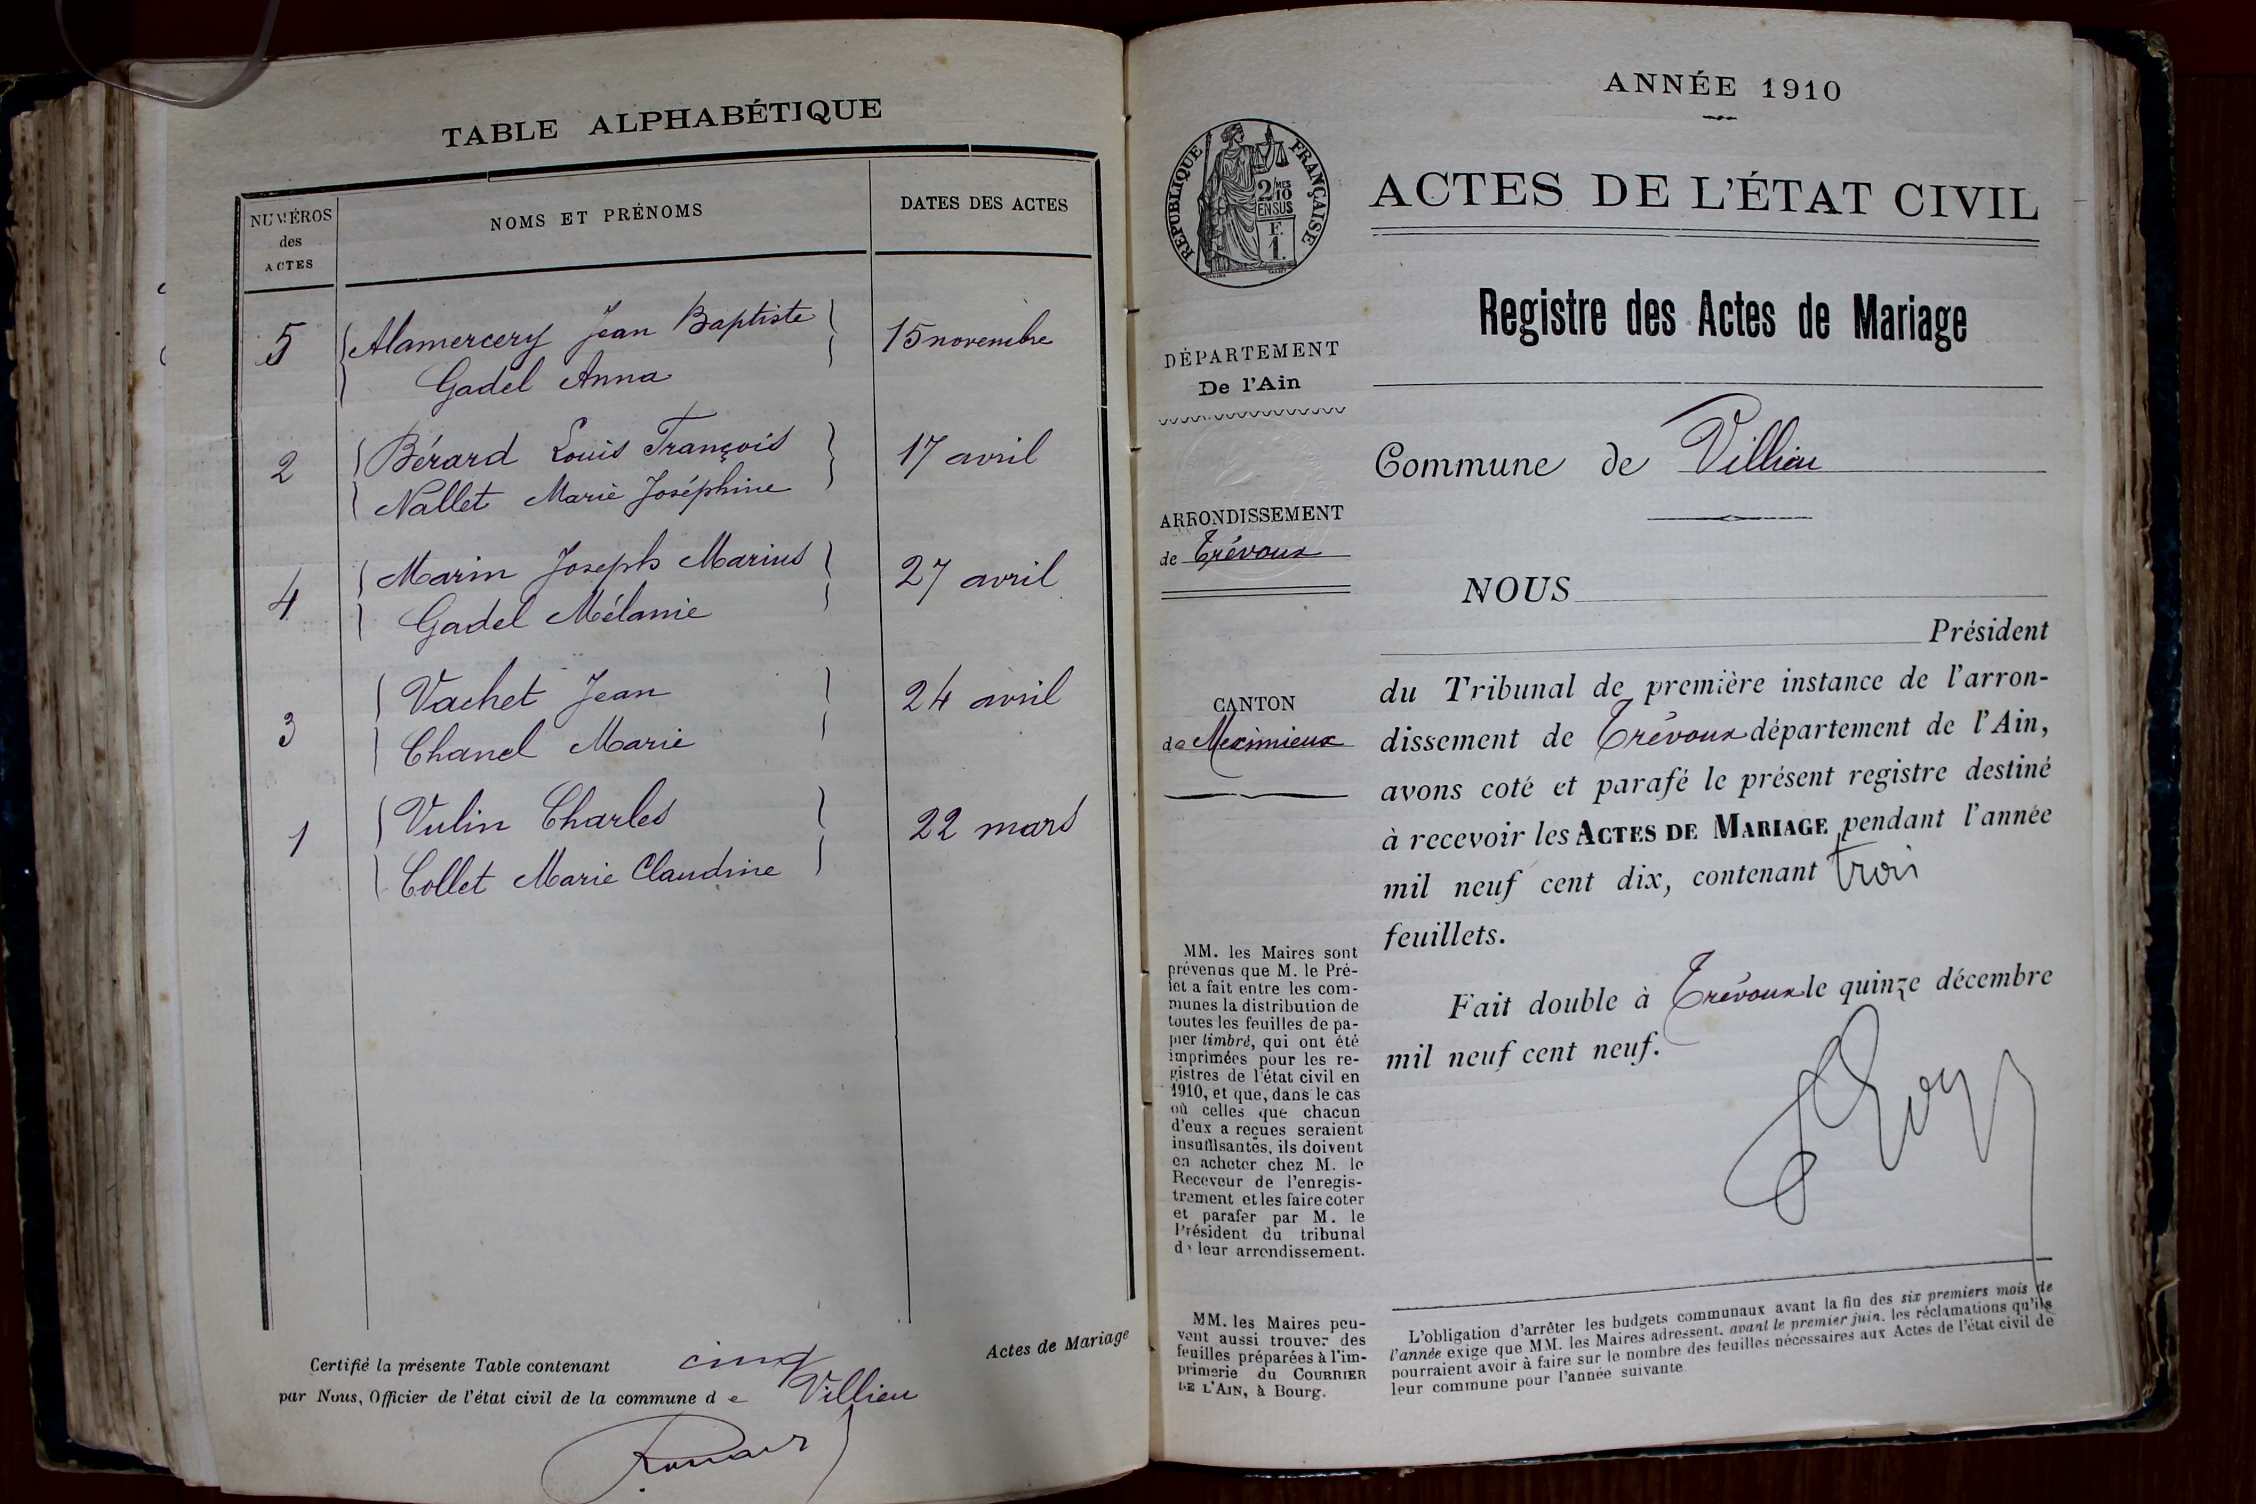 TABLE ALPHABÉTIQUE
NUMÉROS
des
ACTES
NOMS ET PRÉNOMS
DATES DES ACTES
5 Alamercery Jean Baptiste 15 novembre
Gadel Anna
2 Bérard Louis François 17 avril
Nallet Marie Joséphine
4 Marin Joseph Marius 27 avril
Gadel Mélanie
3 Vachet Jean 24 avril
Chanel Marie
1 Vulin Charles 22 mars
Collet Marie Claudine
Certifié la présente Table contenant cinq Actes de Mariage
par Nous, Officier de l'état civil de la commune de Villieu
ANNÉE 1910
RÉPUBLIQUE FRANÇAISE
2/10 MES
EN SUS
F.
1.
ACTES DE L'ÉTAT CIVIL
Registre des Actes de Mariage
DÉPARTEMENT
De l'Ain
ARRONDISSEMENT
de Trévoux
CANTON
de Meximieux
MM. les Maires sont
prévenus que M. le Pré-
fet a fait entre les com-
munes la distribution de
toutes les feuilles de pa-
pier timbré, qui ont été
imprimées pour les re-
gistres de l'état civil en
1910, et que, dans le cas
où celles que chacun
d'eux a reçues seraient
insuffisantes, ils doivent
en acheter chez M. le
Receveur de l'enregis-
trement et les faire coter
et parafer par M. le
Président du tribunal
de leur arrondissement.
MM. les Maires peu-
vent aussi trouver des
feuilles préparées à l'im-
primerie du COURRIER
DE L'AIN, à Bourg.
Commune de Villieu
NOUS
Président
du Tribunal de première instance de l'arron-
dissement de Trévoux département de l'Ain,
avons coté et parafé le présent registre destiné
à recevoir les ACTES DE MARIAGE pendant l'année
mil neuf cent dix, contenant trois
feuillets.
Fait double à Trévoux le quinze décembre
mil neuf cent neuf.
L'obligation d'arrêter les budgets communaux avant la fin des six premiers mois de
l'année exige que MM. les Maires adressent, avant le premier juin, les réclamations qu'ils
pourraient avoir à faire sur le nombre des feuilles nécessaires aux Actes de l'état civil de
leur commune pour l'année suivante